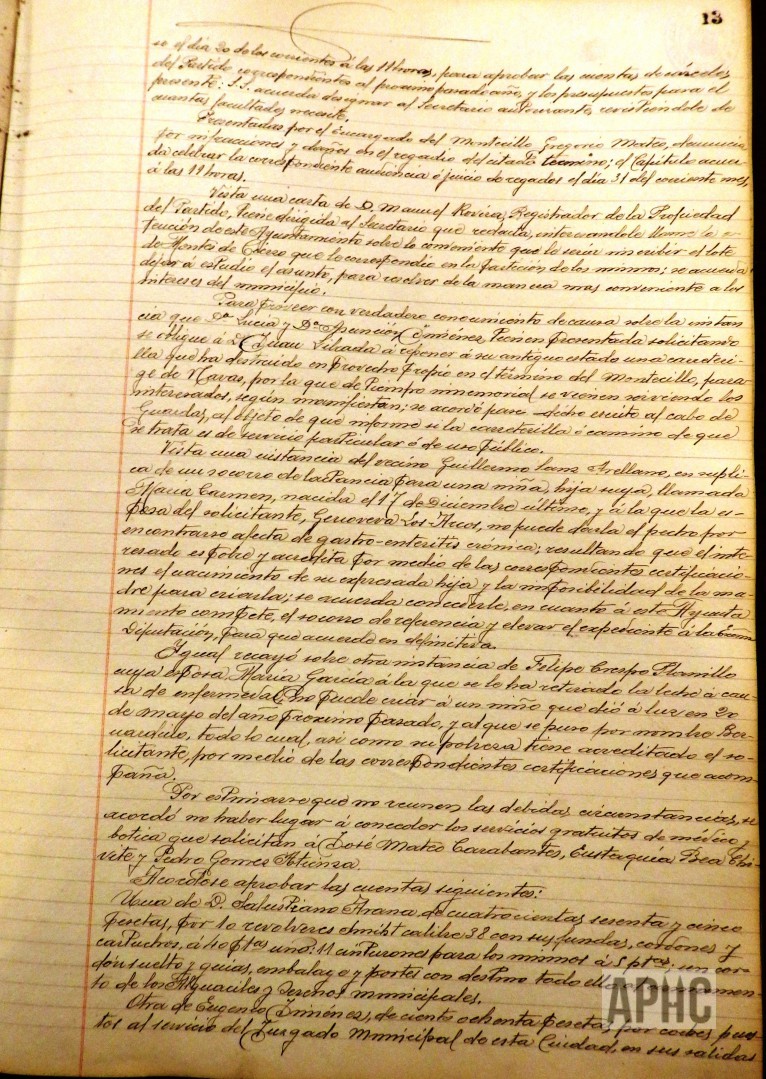 13
se el día 20 de los corrientes á las 11 horas, para aprobar las cuentas de cárceles
del Partido correspondientes al proximo pasado año, y los presupuestos para el
presente: S.S. acuerda designar al Secretario autorizante, revistiendole de
cuantas facultades necesite.
Presentadas por el Encargado del Monticillo Gregorio Mateo, denuncia
por infracciones y daños en el regadio del citado termino; el Capítulo acuer-
da celebrar la correspondiente audiencia ó juicio de regados el día 31 del corriente mes,
á las 11 horas.
Vista una carta de D. Manuel Rovira, Registrador de la Propiedad
del Partido, tiene dirigida al Secretario que redacta, interesandole llame la a-
tención de este Ayuntamiento sobre lo conveniente que le seria inscribir el lote
de Montes de Cierzo que le correspondió en la partición de los mismos; se acuerda
dejar á estudio el asunto, para resolver de la manera mas conveniente a los
intereses del municipio.
Para proveer con verdadero conocimiento de causa sobre la instan
cia que Dª Lucia y Dª Asunción Jiménez tienen presentada solicitando
se obligue á D. Juan á reponer á su antiguo estado una carreteri-
lla que ha destruido en provecho propio en el término del Montecillo, para-
ge de Navas, por la que de tiempo inmemorial se vienen sirviendo los
interesados, según manifiestan; se acordó pase dicho escrito al cabo de
Guardas, al objeto de que informe si la carreterilla ó camino de que
se trata es de servicio particular ó de uso público.
Vista una instancia del vecino Guillermo Sanz Arellano, en súpli-
ca de un socorro de lactancia para una niña, hija suya, llamada
María Carmen, nacida el 17 de Diciembre último, y á la que la es-
posa del solicitante, Genoveva Los Arcos, no puede darla el pecho por
encontrarse afecta de gastro-enteritis crónica; resultando que el inte-
resado es pobre y acredita por medio de las correspondientes certificacio-
nes el nacimiento de su expresada hija y la imposibilidad de la ma-
dre para criarla; se acuerda concederle, en cuanto á este Ayunta
miento compete, el socorro de referencia y elevar el expediente á la Excma
Diputación, para que acuerde en definitiva.
Igual recayó sobre otra instancia de Felipe Crespo Ramillo
cuya esposa María García á la que se le ha retirado la leche á cau-
sa de enfermedad, no puede criar á un niño que dió á luz en 20
de mayo del año proximo pasado, y al que se puso por nombre Ber-
nardino, todo lo cual, asi como su pobreza tiene acreditado el so-
licitante, por medio de las correspondientes certificaciones que acom-
paña.
Por estimarse que no reunen las debidas circunstancias, se
acordó no haber lugar á conceder los servicios gratuitos de médico y
botica que solicitan á José Mateo Carabantes, Eustaquia Bea
y Pedro Gomez Atienza.
Acordóse aprobar las cuentas siguientes:
Una de D. Salustiano Arana, de cuatrocientas sesenta y cinco
pesetas, por 10 revolveres Smist calibre 38 con sus fundas, cordones y
cartuchos, á 40 ptas uno: 11 cinturones para los mismos á 5 ptas. un cor-
dón suelto y guias, embalage y portes con destino todo ello al
to de los Alguaciles y Serenos municipales.
Otra de Eugenio Jiménez, de ciento ochenta pesetas, por coches pues-
tos al servicio del Juzgado Municipal de esta Ciudad, en sus salidas
APHC